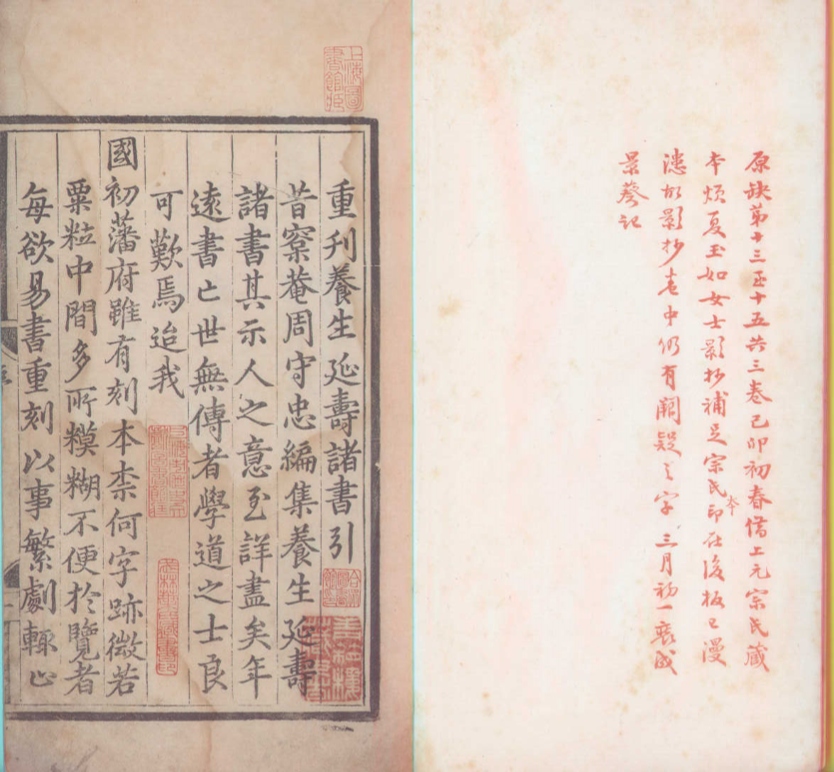 原缺第十三至十五共三卷己卯初春借上元宗氏藏
本煩夏玉如女士影抄補足宗氏本印在後板已漫
漶故影抄卷中仍有闕疑之字 三月初一裝成
景葵記
上海圖書館藏
重刊養生延壽諸書引
昔寀菴周守忠編集養生延壽
諸書其示人之意至詳盡矣年
遠書亡世無傳者學道之士良
可歎焉迨我
國初藩府雖有刻本柰何字跡微若
粟粒中間多所糢糊不便於覽者
每欲易書重刻以事繁劇輙止